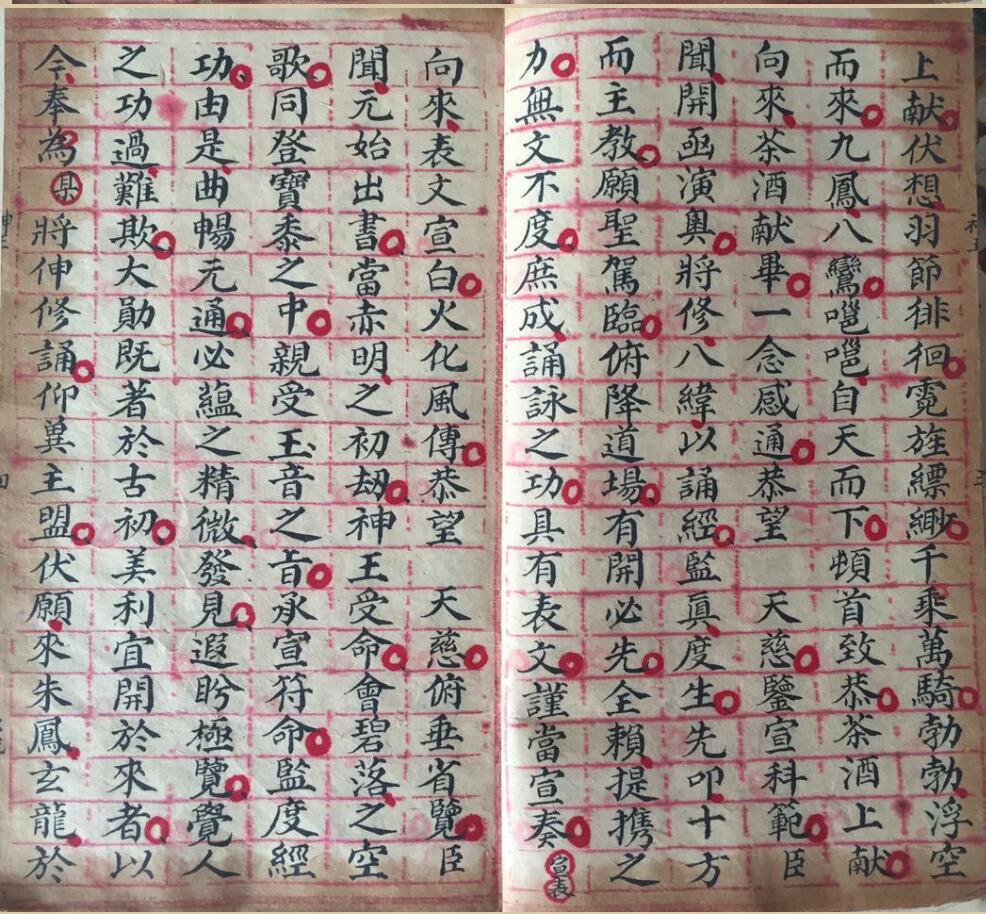 上献伏想羽節徘徊霓旌縹緲千乘萬騎勃勃浮空
而來九鳳八鸞嗈嗈自天而下頓首致恭茶酒上献
向來茶酒献畢一念感通恭望 天慈鑒宣科範臣
聞開函演奧將修八緯以誦經監眞度生先叩十方
而主教願聖駕臨俯降道場有開必先全賴提携之
力無文不度庶成誦詠之功具有表文謹當宣奏 宣表
向來表文宣白火化風傳恭望 天慈俯垂省覽臣
聞元始出書當赤明之初劫神王受命會碧落之空
歌同登寶黍之中親受玉音之旨承宣符命監度經
功由是曲暢元通必蘊之精微發見遐盻極覽覺人
之功過難欺大勛既著於古初美利宜開於來者以
今奉為 將伸修誦仰冀主盟伏願來朱鳳玄龍於